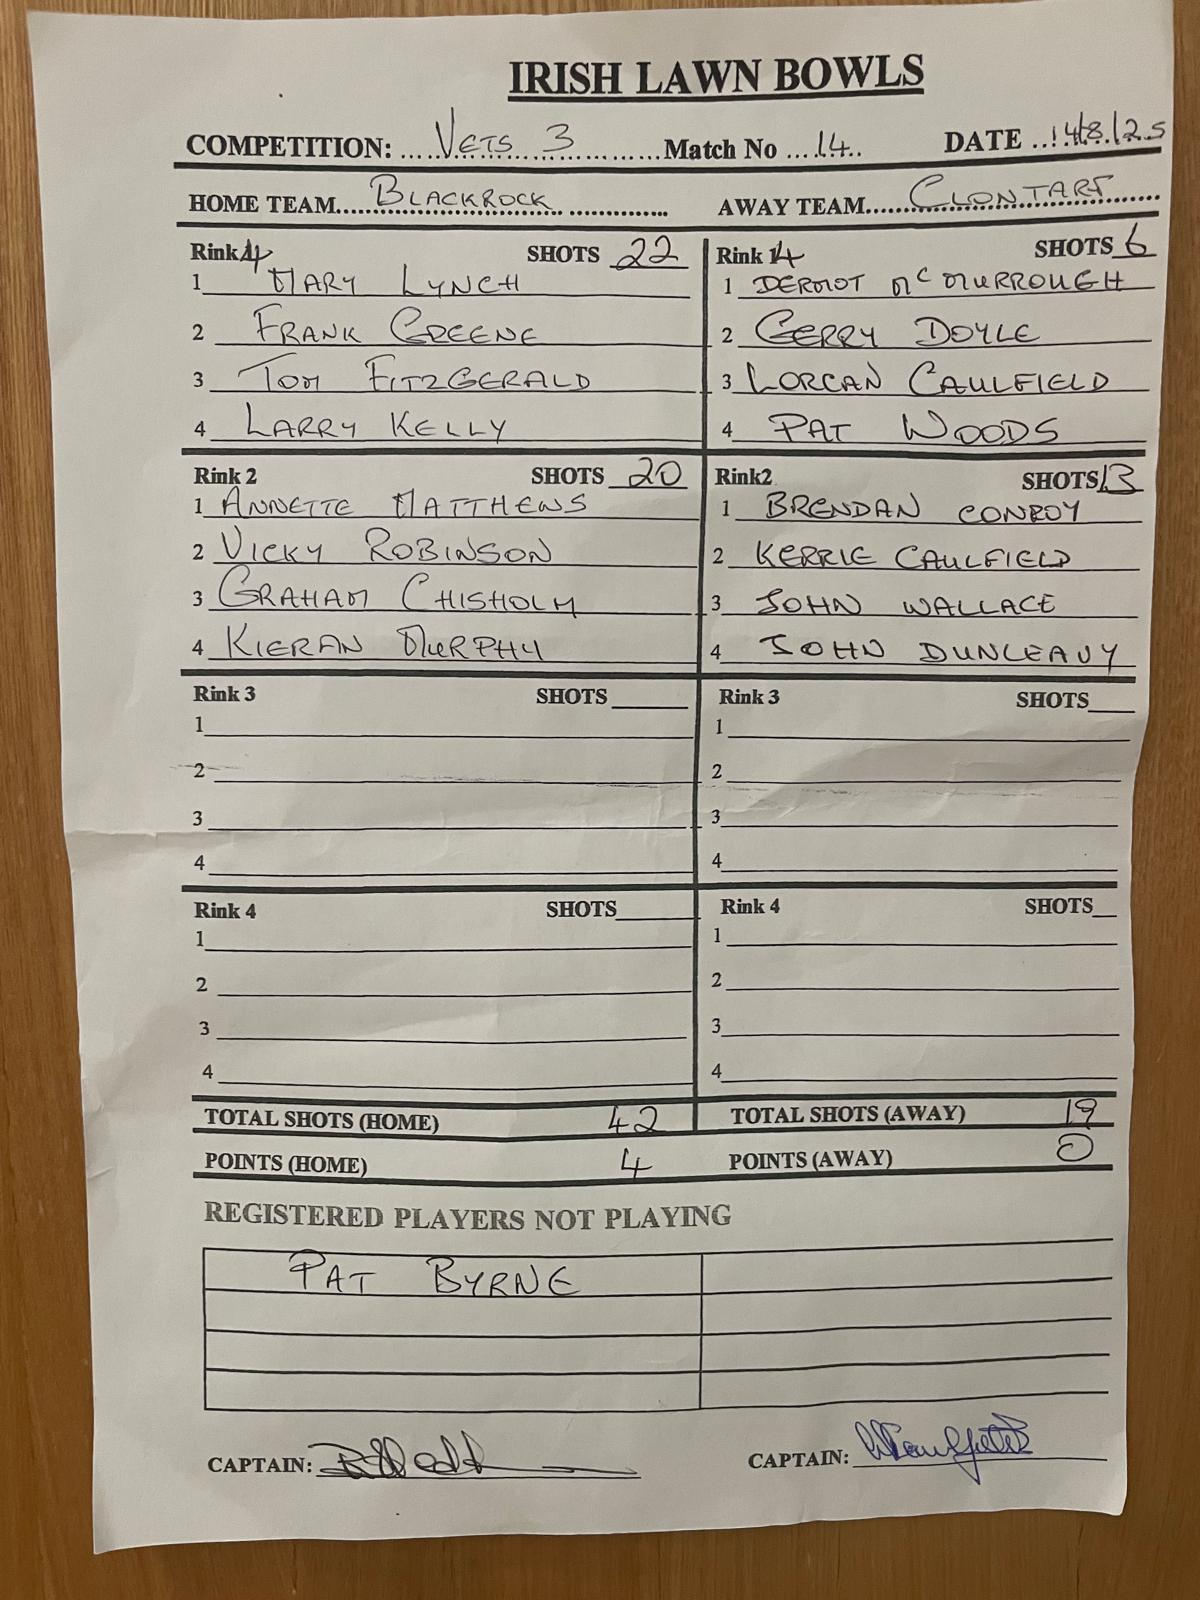 IRISH LAWN BOWLS
COMPETITION: VETS 3 Match No 14 DATE 14/8/25
HOME TEAM BLACKROCK AWAY TEAM CLONTARF
Rink 4 SHOTS 22
1 MARY LYNCH
2 FRANK GREENE
3 TOM FITZGERALD
4 LARRY KELLY
Rink 4 SHOTS 6
1 DERMOT McMURROUGH
2 GERRY DOYLE
3 LORCAN CAULFIELD
4 PAT WOODS
Rink 2 SHOTS 20
1 ANNETTE MATTHEWS
2 VICKY ROBINSON
3 GRAHAM CHISHOLM
4 KIERAN MURPHY
Rink2 SHOTS 13
1 BRENDAN CONROY
2 KERRIE CAULFIELD
3 JOHN WALLACE
4 JOHN DUNLEAVY
Rink 3 SHOTS
1
2
3
4
Rink 3 SHOTS
1
2
3
4
Rink 4 SHOTS
1
2
3
4
Rink 4 SHOTS
1
2
3
4
TOTAL SHOTS (HOME) 42 TOTAL SHOTS (AWAY) 19
POINTS (HOME) 4 POINTS (AWAY) 0
REGISTERED PLAYERS NOT PLAYING
PAT BYRNE
CAPTAIN: CAPTAIN: